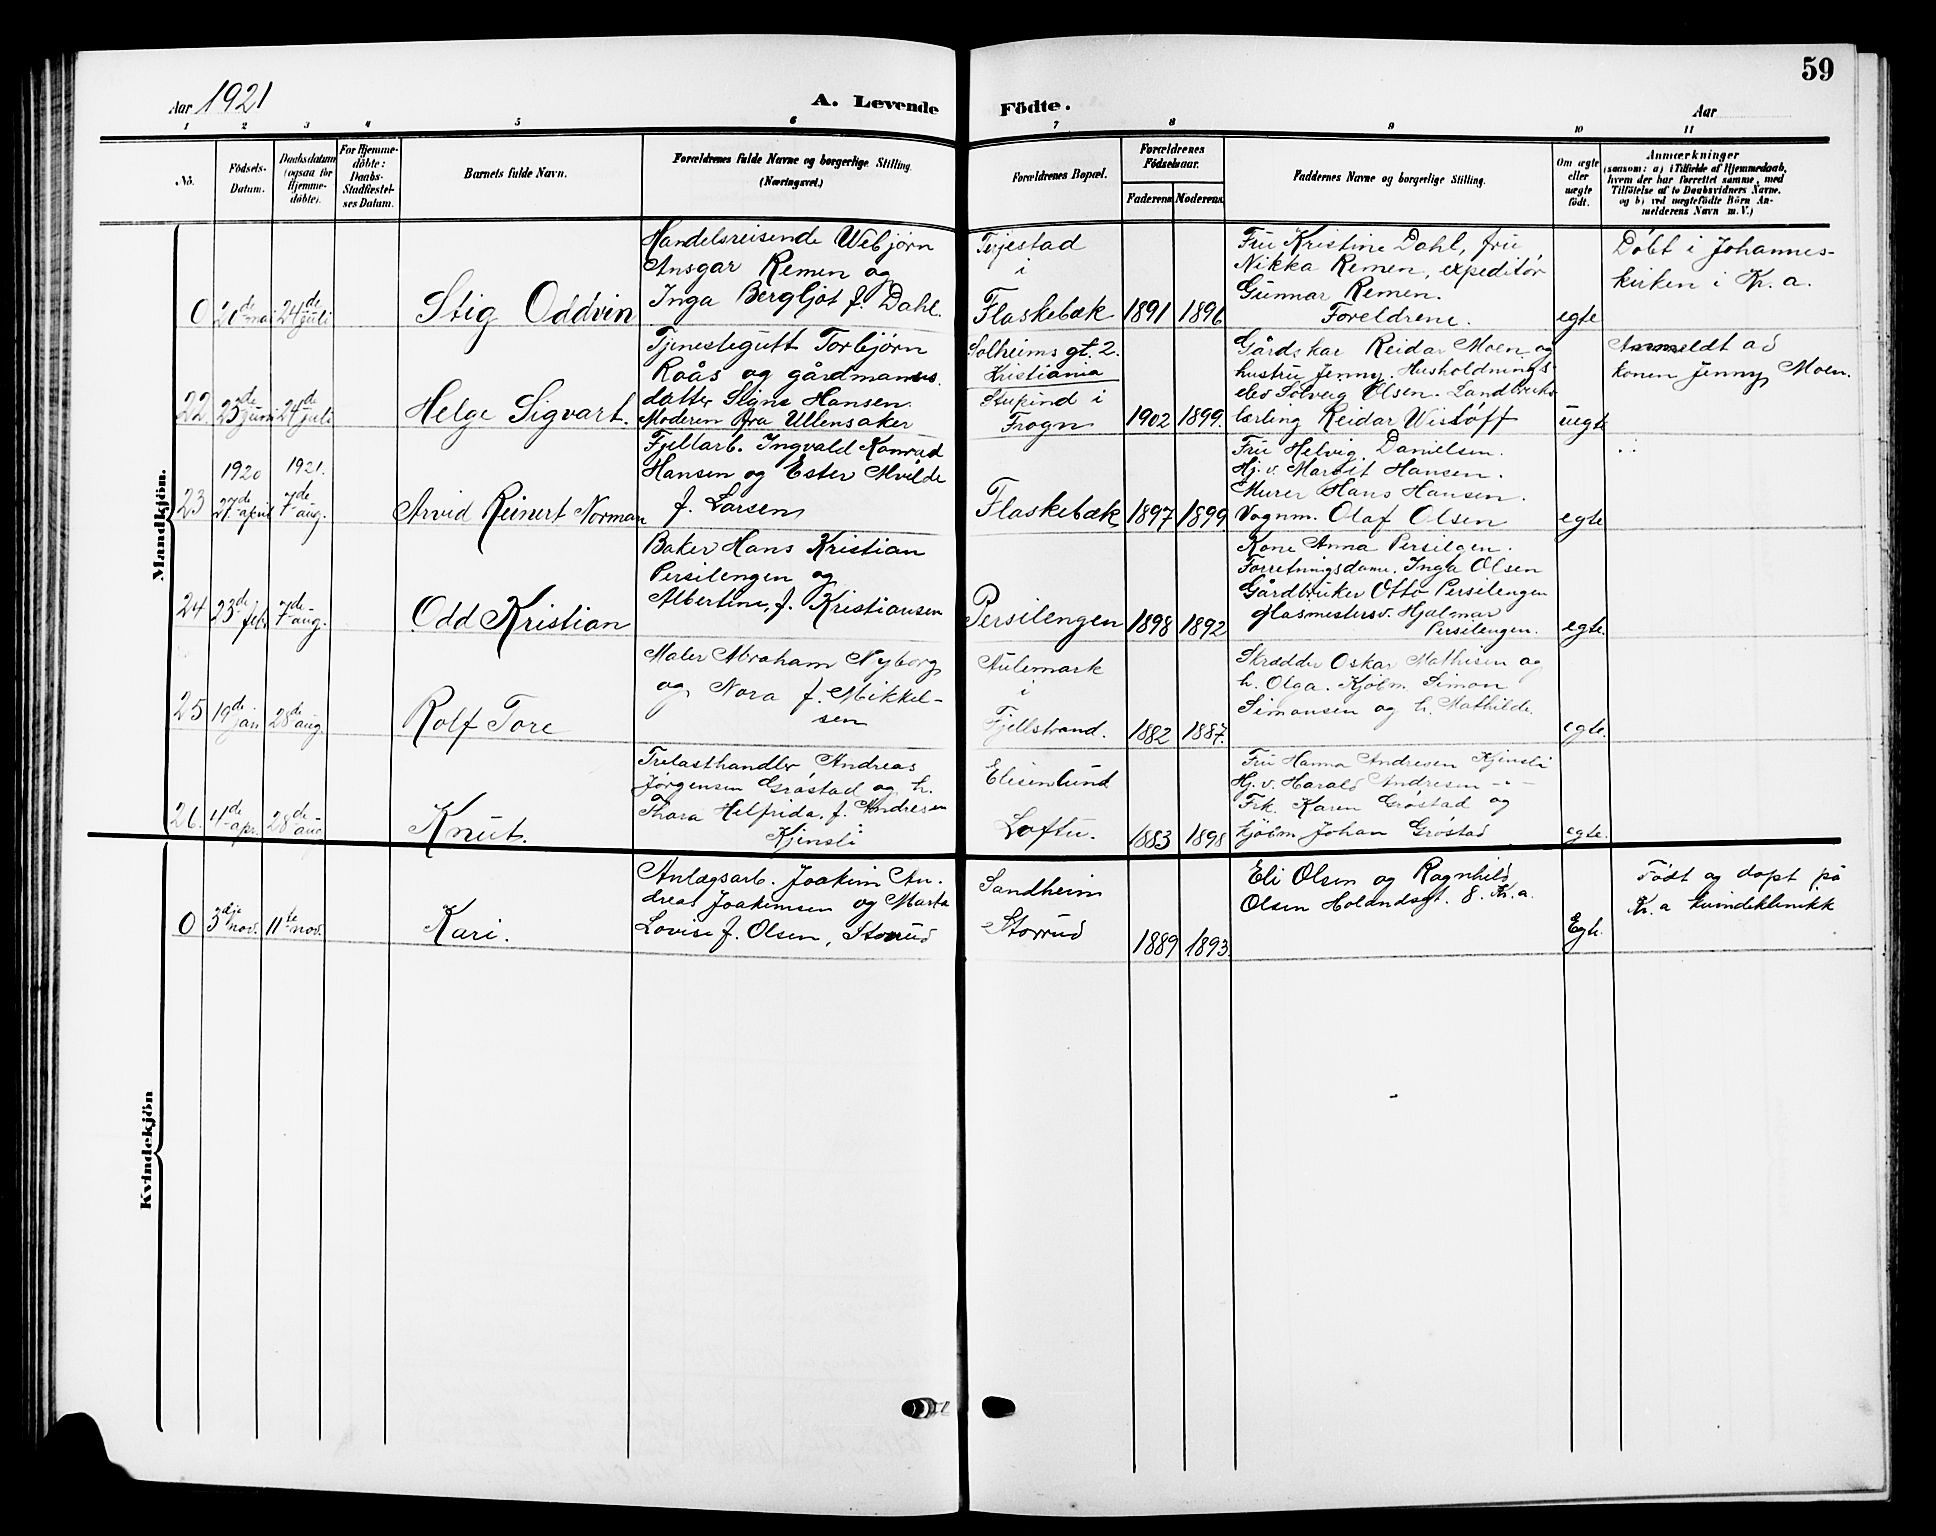 59
Aar 1921
A. Levende Födte.
Aar
1 2 3 4 5 6 7 8 9 10 11
No.
Födsels-
Datum.
Daabsdatum
(ogsaa for
Hjemme-
döbte).
For Hjemme-
döbte:
Daabs-
Stadfæstel-
ses Datum.
Barnets fulde Navn.
Forældrenes fulde Navne og borgerlige Stilling.
(Næringsvei.)
Forældrenes Bopæl.
Forældrenes
Födselsaar.
Faderens
Moderens
Faddernes Navne og borgerlige Stilling.
Om ægte
eller
uægte
födt.
Anmærkninger
(saasom: a) i Tilfælde af Hjemmedaab,
hvem der har forrettet samme, med
Tilföielse af to Daabsvidners Navne.
og b) ved uægtefödte Börn An-
melderens Navn m. V.)
Mandkjön.
0
mai
24de juli
Stig Oddvin
Handelsreisende Webjørn
Ansgar Remen og
Inga Bergljot f. Dahl.
Terjestad
i
Flaskebæk
1891
1896
Fru Kristine Dahl, fru
Nikka Remen, expeditør
Gunnar Remen.
Foreldrene.
egte
Døbt i Johannes-
kirken i Kr. a.
22.
23de juni
24de juli
Helge Sigvart.
Tjenestegutt Torbjørn
Raås og gårdmanns
datter Signe Hansen.
Moderen fra Ullensaker
Solheims gt. 2.
Kristiania
Stupind i
Frogn
1902
1899.
Gårdskar Reidar Moen og
hustru Jenny. Husholdnings
elev Solveig Olsen. Landbruks
lærling Reidar Wistøff
uegte
Anmeldt ad
konen Jenny Moen.
23
1920
27de april
1921.
7de aug.
Arvid Reinert Norman
Fjellarb. Ingvald Konrad
Hansen og Ester Alvilde
f. Larsen
Flaskebæk
1897
1899.
Fru Helvig Danielsen.
Hj. v. Margit Hansen.
Murer Hans Hansen.
Vognm. Olaf Olsen
egte
24
23de feb.
7de aug.
Odd Kristian
Baker Hans Kristian
Persilengen og
Albertine, f. Kristiansen
Persilengen
1898
1892
Kone Anna Persilgen.
Forretningsdame. Inga Olsen
Gårdbruker Otto Persilengen
Glasmestersv. Hjalmar
Persilengen.
egte.
25
19de jan
28de aug.
Rolf Tore
Maler Abraham Nyborg
og Nora f. Mikkel-
sen
Aulemark
i
Fjellstrand.
1882
1887.
Skrædder Oskar Mathisen og
h. Olga. Kjøbm. Simon
Simonsen og h. Mathilde.
egte.
26.
4de apr.
28de aug
Knut.
Trelasthandler Andreas
Jørgensen Grøstad og h.
Thora Helfrida, f. Andresen
Kjensli
Elisenlund
Loftu.
1883
1898
Fru Hanna Andresen Kjensli
Hj. v. Harald Andresen -"-
Frk. Karen Grøstad og
kjøbm Johan Grøstad
egte.
Kvindekjön
0
3dje nov.
11te nov.
Kari.
Anlægsarb. Joakim An-
dreas Joakimsen og Marta
Lovise f. Olsen, Storrud
Sandheim
Storrud
1889
1893.
Eli Olsen og Ragnhild
Olsen Holandsgt. 8. Kr. a.
Egte.
Født og døpt på
Kr. a kvindeklinikk